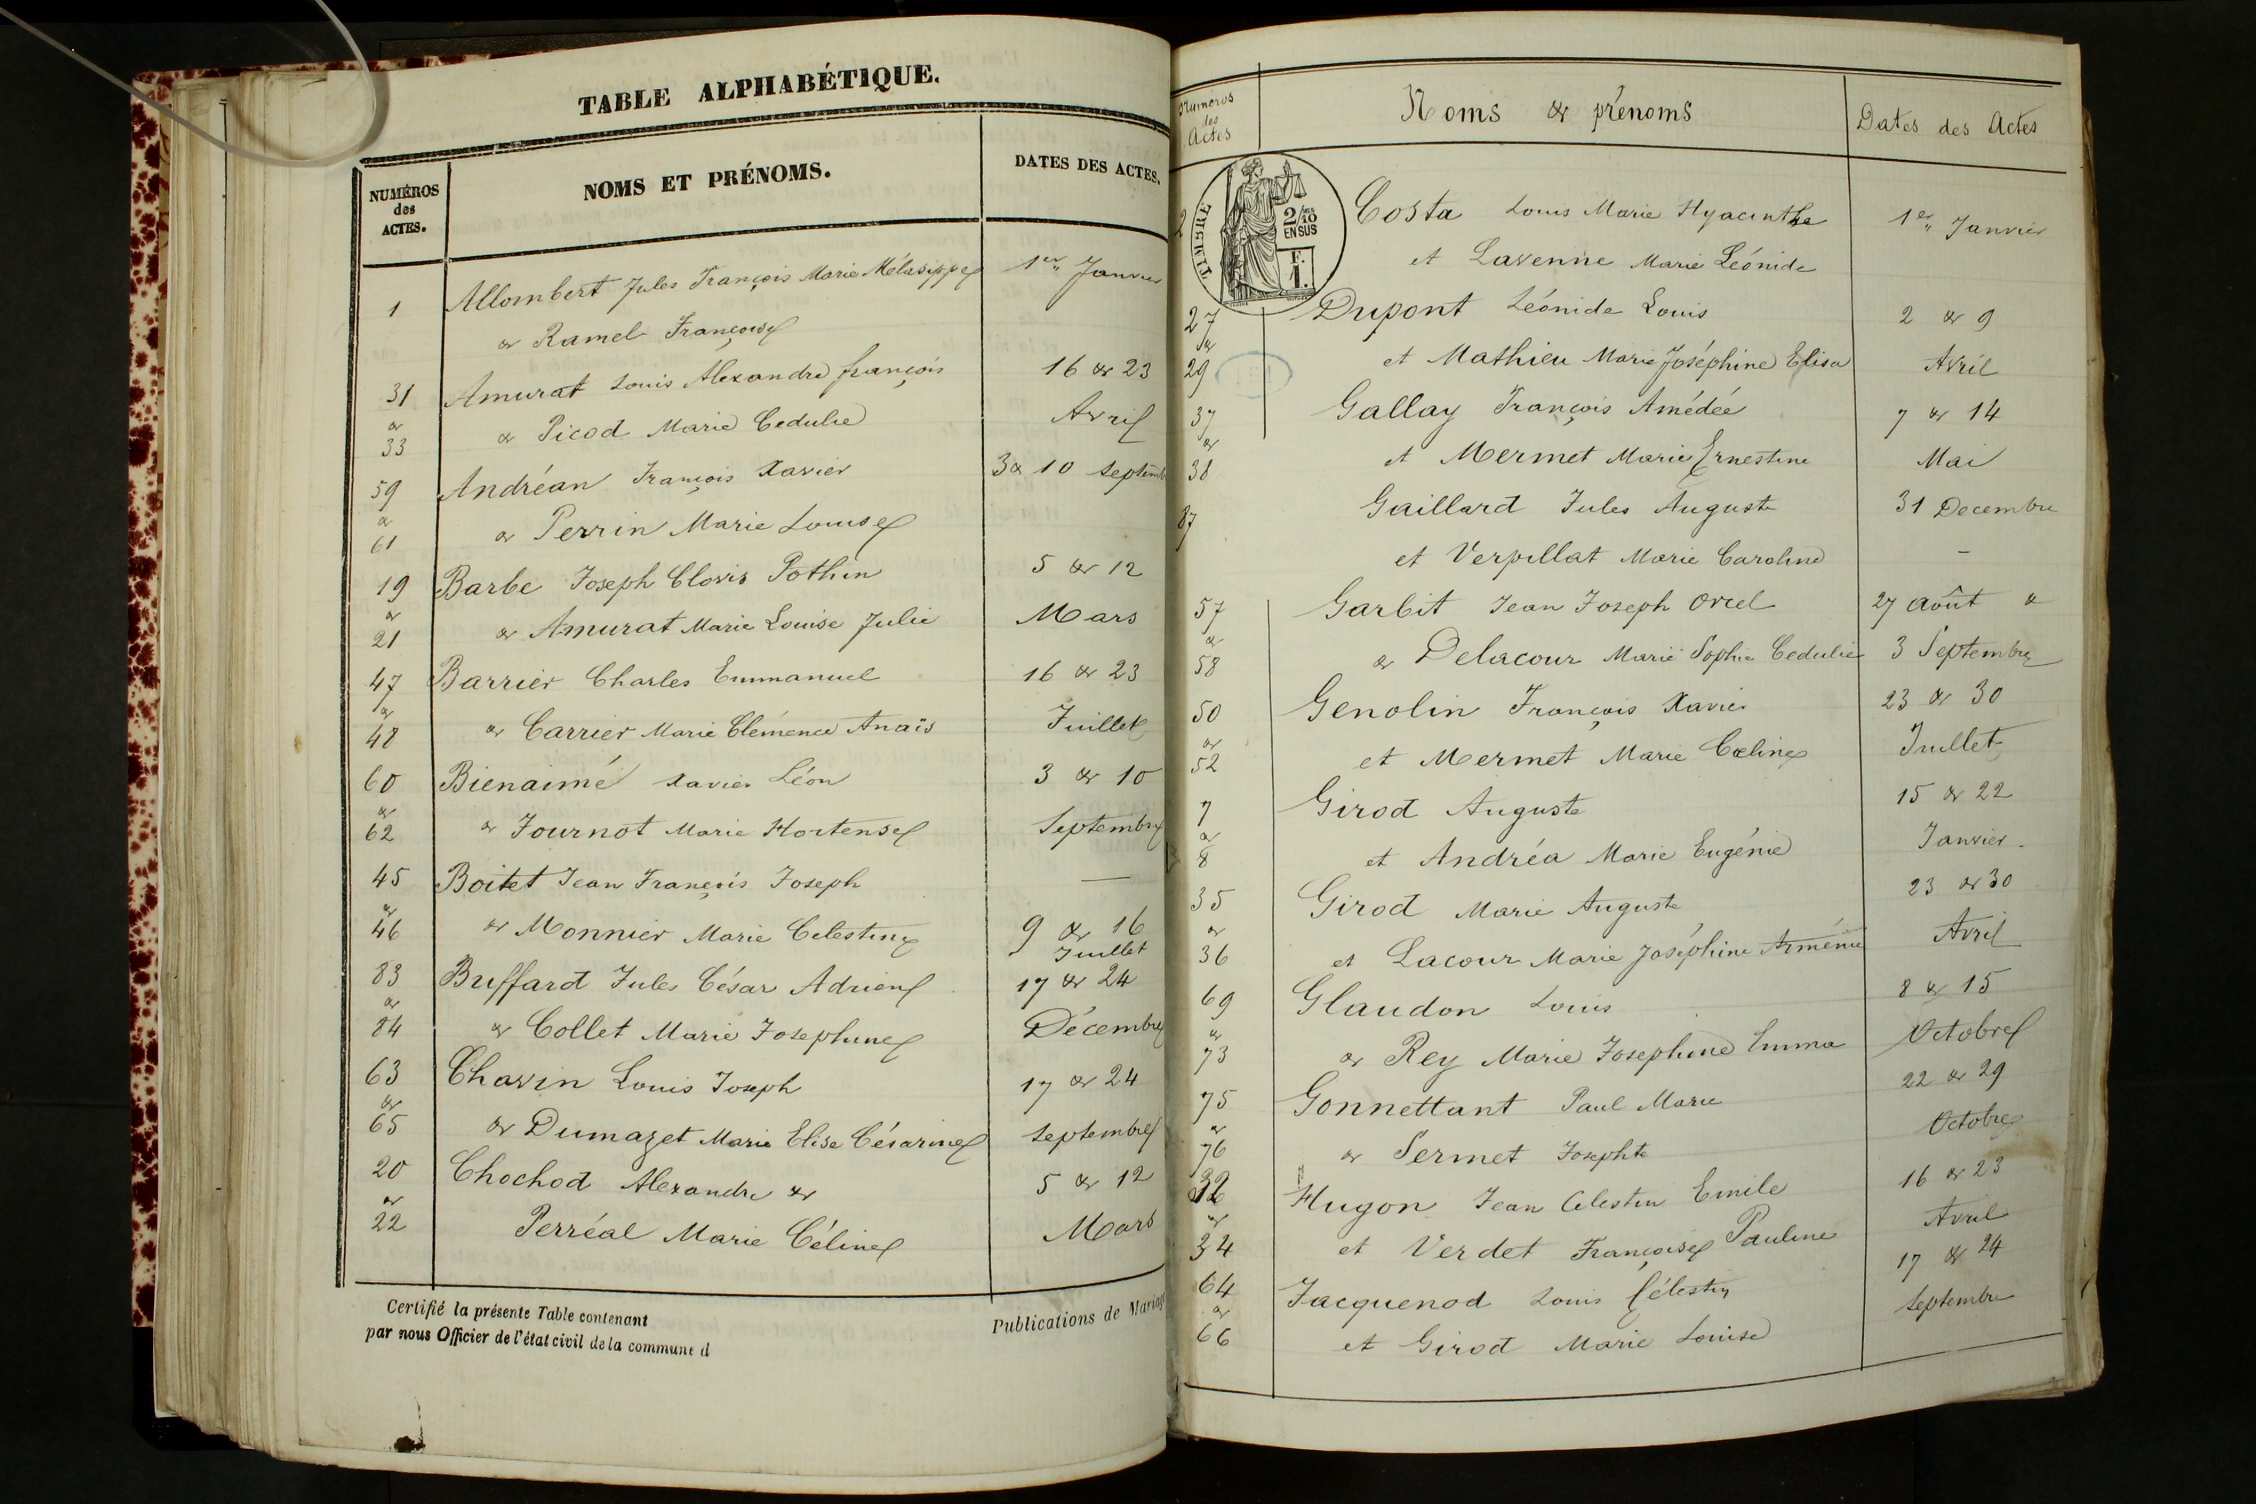 TABLE ALPHABÉTIQUE.
NUMÉROS
des
ACTES.
NOMS ET PRÉNOMS.
DATES DES ACTES.
1 Allombert Jules François Marie Mélasippe 1er Janvier
& Ramel Françoise
31 Amurat Louis Alexandre françois 16 & 23
&
33 & Picod Marie Cedulie Avril
59 Andréan François Xavier 3 & 10 Septemb
&
61 & Perrin Marie Louise
19 Barbe Joseph Clovis Pothin 5 & 12
&
21 & Amurat Marie Louise Julie Mars
47 Barrier Charles Emmanuel 16 & 23
&
48 & Carrier Marie Clémence Anaïs Juillet
60 Bienaimé Xavier Léon 3 & 10
&
62 & Journot Marie Hortense Septembre
45 Boitet Jean François Joseph —
&
46 & Monnier Marie Celestine 9 & 16
Juillet
83 Buffard Jules César Adrien 17 & 24
&
84 & Collet Marie Josephine Décembre
63 Chavin Louis Joseph 17 & 24
&
65 & Dumazet Marie Elise Césarine Septembre
20 Chochod Alexandre & 5 & 12
&
22 Perréal Marie Céline Mars
Certifié la présente Table contenant Publications de Mariage
par nous Officier de l'état civil de la commune d
Numeros
des
Actes
Noms & prénoms
Dates des Actes
TIMBRE
2/10
EN SUS
F.
1.
2 Costa Louis Marie Hyacinthe 1er Janvier
et Lavenne Marie Léonide
27 Dupont Léonide Louis 2 & 9
&
29 et Mathieu Marie Joséphine Elisa Avril
37 Gallay François Amédée 7 & 14
&
38 et Mermet Marie Ernestine Mai
87 Gaillard Jules Auguste 31 Decembre
et Verpillat Marie Caroline —
57 Garbit Jean Joseph Orcel 27 Août &
&
58 & Delacour Marie Sophie Cedulie 3 Septembre
50 Genolin François Xavier 23 & 30
&
52 et Mermet Marie Celine Juillet
7 Girod Auguste 15 & 22
&
8 et Andréa Marie Eugénie Janvier
35 Girod Marie Auguste 23 & 30
&
36 et Lacour Marie Joséphine Arménie Avril
69 Glaudon Louis 8 & 15
&
73 & Rey Marie Josephine Emma Octobre
75 Gonnettant Paul Marie 22 & 29
&
76 & Sermet Josephte Octobre
32 Hugon Jean Celestin Emile 16 & 23
&
34 et Verdet Françoise Pauline Avril
64 Jacquenod Louis Célestin 17 & 24
&
66 et Girod Marie Louise Septembre